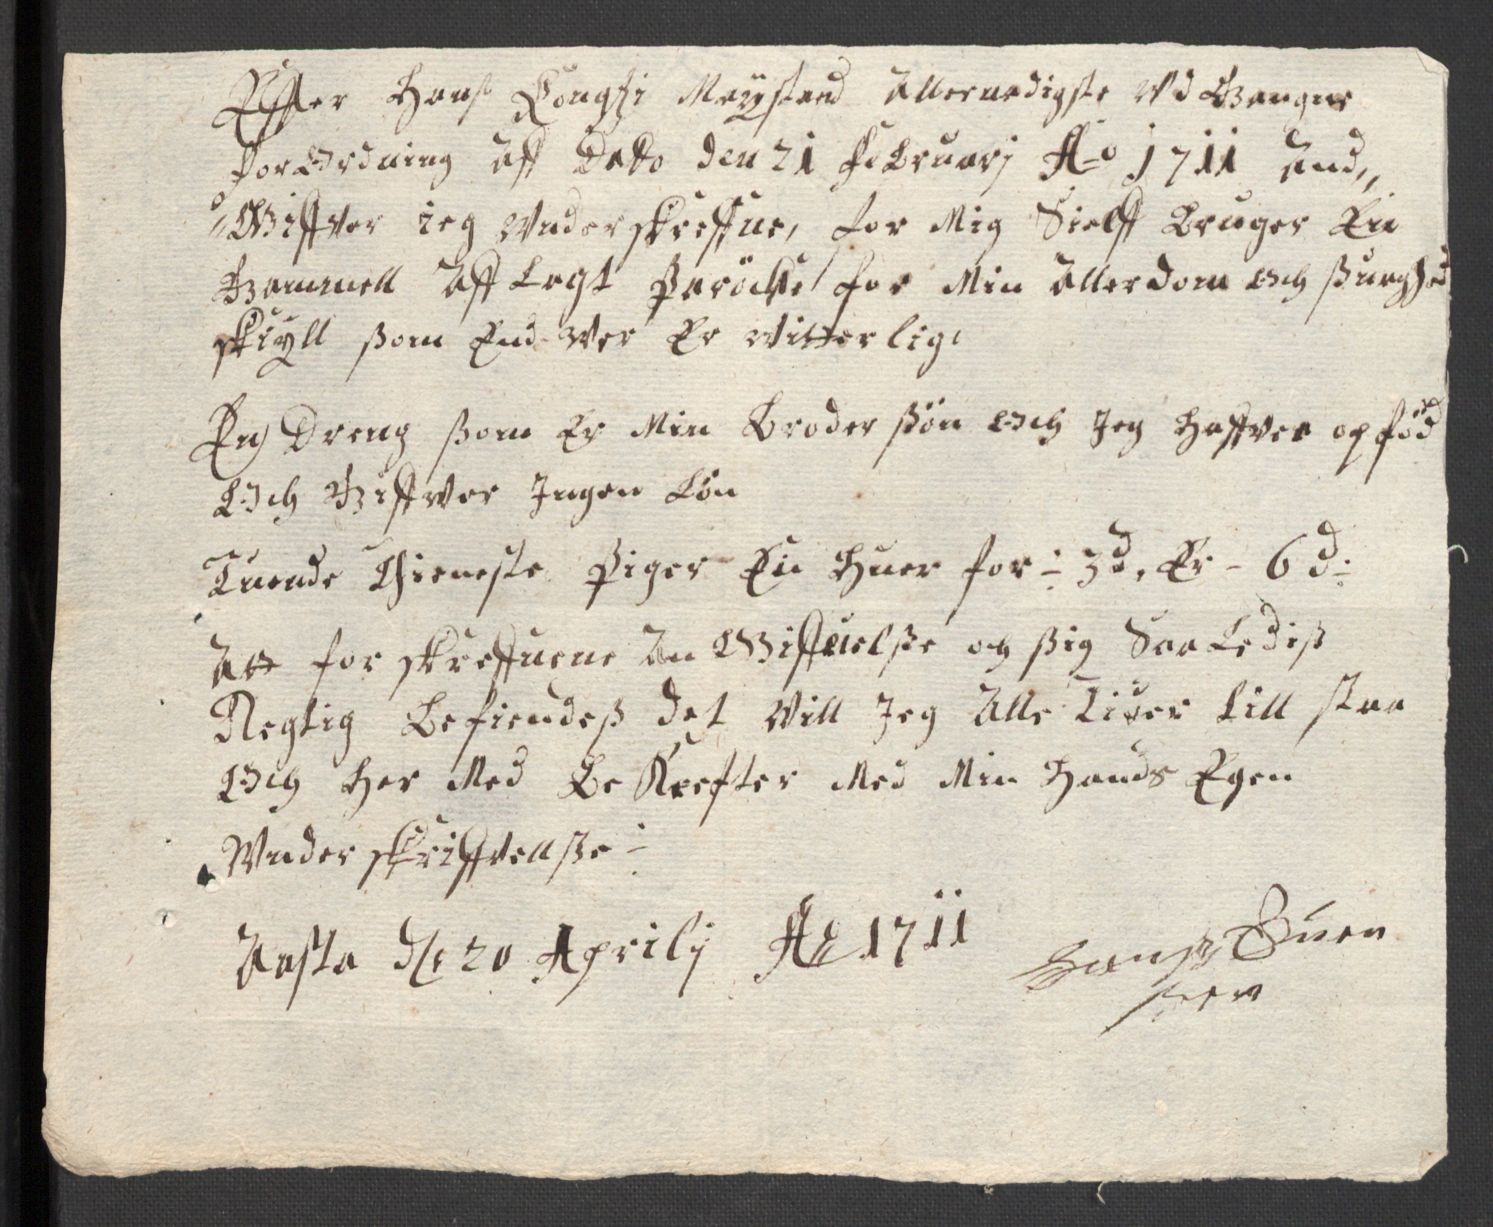 Effter Hans Kongli Maysted Allernadigste Vd Gangne
forOrdning Aff Dato den 21 Februarj Ao 1711 And,,
,,Giffver ieg Vnderskreffne, for Mig Sielff Bruger Ein
Gammell Aff Lagt Paröcke for Min Allerdom Och Suaghed
skiyll Som End Ver Er Vitterlig
En Dreng Som Er Min Broder Sön Och Jeg Haffver opföd
Och Giffver Ingen Lön
Tuende Thieneste Piger En Huer for ÷ 3 d, Er - 6 d:
Att forskreffuene An Giffuelse og Sig Saa Ledis
Regtig Befiendes det Vill Jeg Alle Tider till staa
Och Her Med Be Krefter Med Min Hands Egen
Vnderskriffvellse ÷
Aasta d: 20 Aprilj Ao 1711
Hans